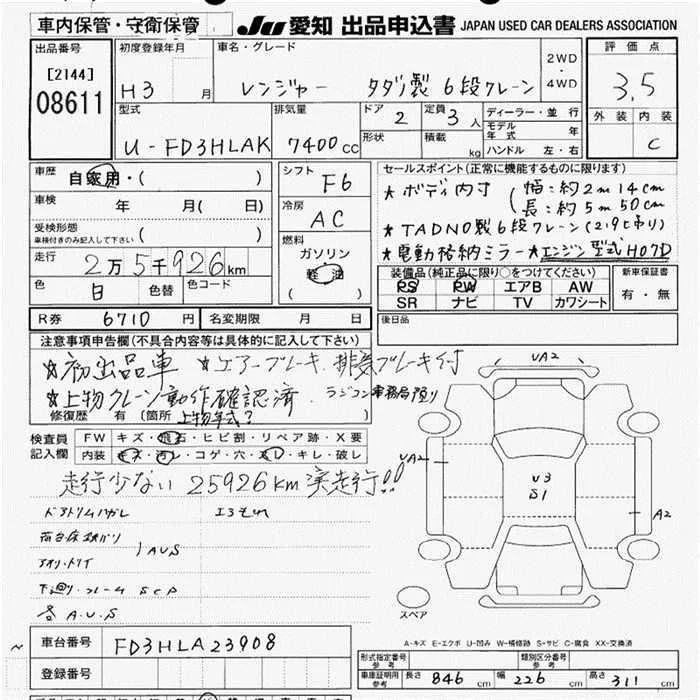 車内保管・守衛保管 JU 愛知 出品申込書 JAPAN USED CAR DEALERS ASSOCIATION
出品番号 初度登録年月 車名・グレード 評価点
[2144] H3 月 レンジャー タダノ製 6段クレーン 2WD・4WD 3.5
08611 型式 排気量 ドア 2 定員 3人 ディーラー・並行 外装 内装
U-FD3HLAK 7400cc 形状 積載 kg モデル年式 年 C
ハンドル 左・右
車歴 自家用・( ) シフト F6 セールスポイント(正常に機能するものに限ります)
車検 年 月( 日) 冷房 AC ★ボディ内寸 (幅:約2m14cm
長:約5m50cm
受検形態 車検付きのみ記入して下さい ( ) 燃料 ★TADNO製6段クレーン(2.9t吊り)
走行 2万5千926km ガソリン ★電動格納ミラー★エンジン型式H07D
色 白 色替 色コード 軽油 ( ) 装備品(純正品に限り○をつけてください) 新車保証書
PS PW エアB AW 有・無
SR ナビ TV カワシート
R券 6710円 名変期限 月 日 後日品
注意事項申告欄(不具合内容等は具体的に記入して下さい)
★初出品車 ★エアーブレーキ、排気ブレーキ付
★上物クレーン動作確認済 ラジコン事務局預り
修復歴 有(箇所 上物年式?
検査員記入欄 FW キズ・飛石・ヒビ割・リペア跡・X要
内装 キズ・汚レ・コゲ・穴・スレ・キレ・破レ
走行少ない 25926km実走行!!
ドアトリムハガレ
AUS
下廻り・フレームSCP
各A.U.S
UA2
UA2
U3
S1
A2
スペア
A-キズ E-エクボ U-凹み W-補修跡 S-サビ C-腐食 XX-交換済
車台番号 FD3HLA23908
登録番号
形式指定番号 参考 類別区分番号 参考
車庫証明用 参考 長さ 846 cm 幅 226 cm 高さ 311 cm